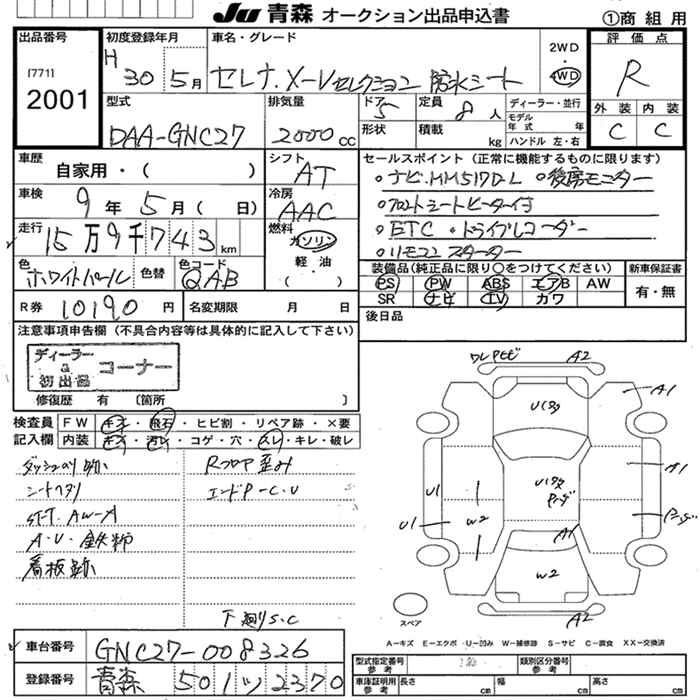 JU 青森 オークション出品申込書
①商 組 用
出品番号
[771]
2001
初度登録年月
H 30 5月
車名・グレード
セレナ X-Vセレクション 防水シート
2WD
・
4WD
評価点
R
外装 内装
C C
型式
DAA-GNC27
排気量
2000 cc
ドア
5
形状
定員
8 人
積載
kg
ディーラー・並行
モデル年式 年
ハンドル 左・右
車歴
自家用・( )
シフト
AT
セールスポイント (正常に機能するものに限ります)
。ナビ.HM517D-L 。後席モニター
。フロントシートヒーター付
。ETC ・ドライブレコーダー
。リモコンスターター
車検
9年 5月( 日)
冷房
AAC
走行
15万9千743km
燃料
ガソリン
軽・油
( )
色
ホワイトパール
色替
色コード
QAB
装備品(純正品に限り○をつけてください)
PS PW ABS エアB AW
SR ナビ TV カワ
新車保証書
有・無
R券 10190 円
名変期限 月 日
後日品
注意事項申告欄 (不具合内容等は具体的に記入して下さい)
ディーラー
&
初出品
コーナー
修復歴 有 〔箇所 〕
検査員
記入欄
FW キズ・飛石・ヒビ割・リペア跡・×要
内装 キズ・汚レ・コゲ・穴・スレ・キレ・破レ
ダッシュのり跡
シートヘタリ
ST-T. AW-A
A・U・鉄粉
看板跡
Rフロア歪み
エンドP-C.U
下廻りS.C
ワレ
A2
A1
Uリタ
A1
U1
U1
W2
A1
W2
A2
スペア
A-キズ E-エクボ U-凹み W-補修跡 S-サビ C-腐食 XX-交換済
車台番号
GNC27-008326
登録番号
青森 501 ツ 2370
型式指定番号
参考
類別区分番号
参考
車庫証明用
参考
長さ cm
幅 cm
高さ cm